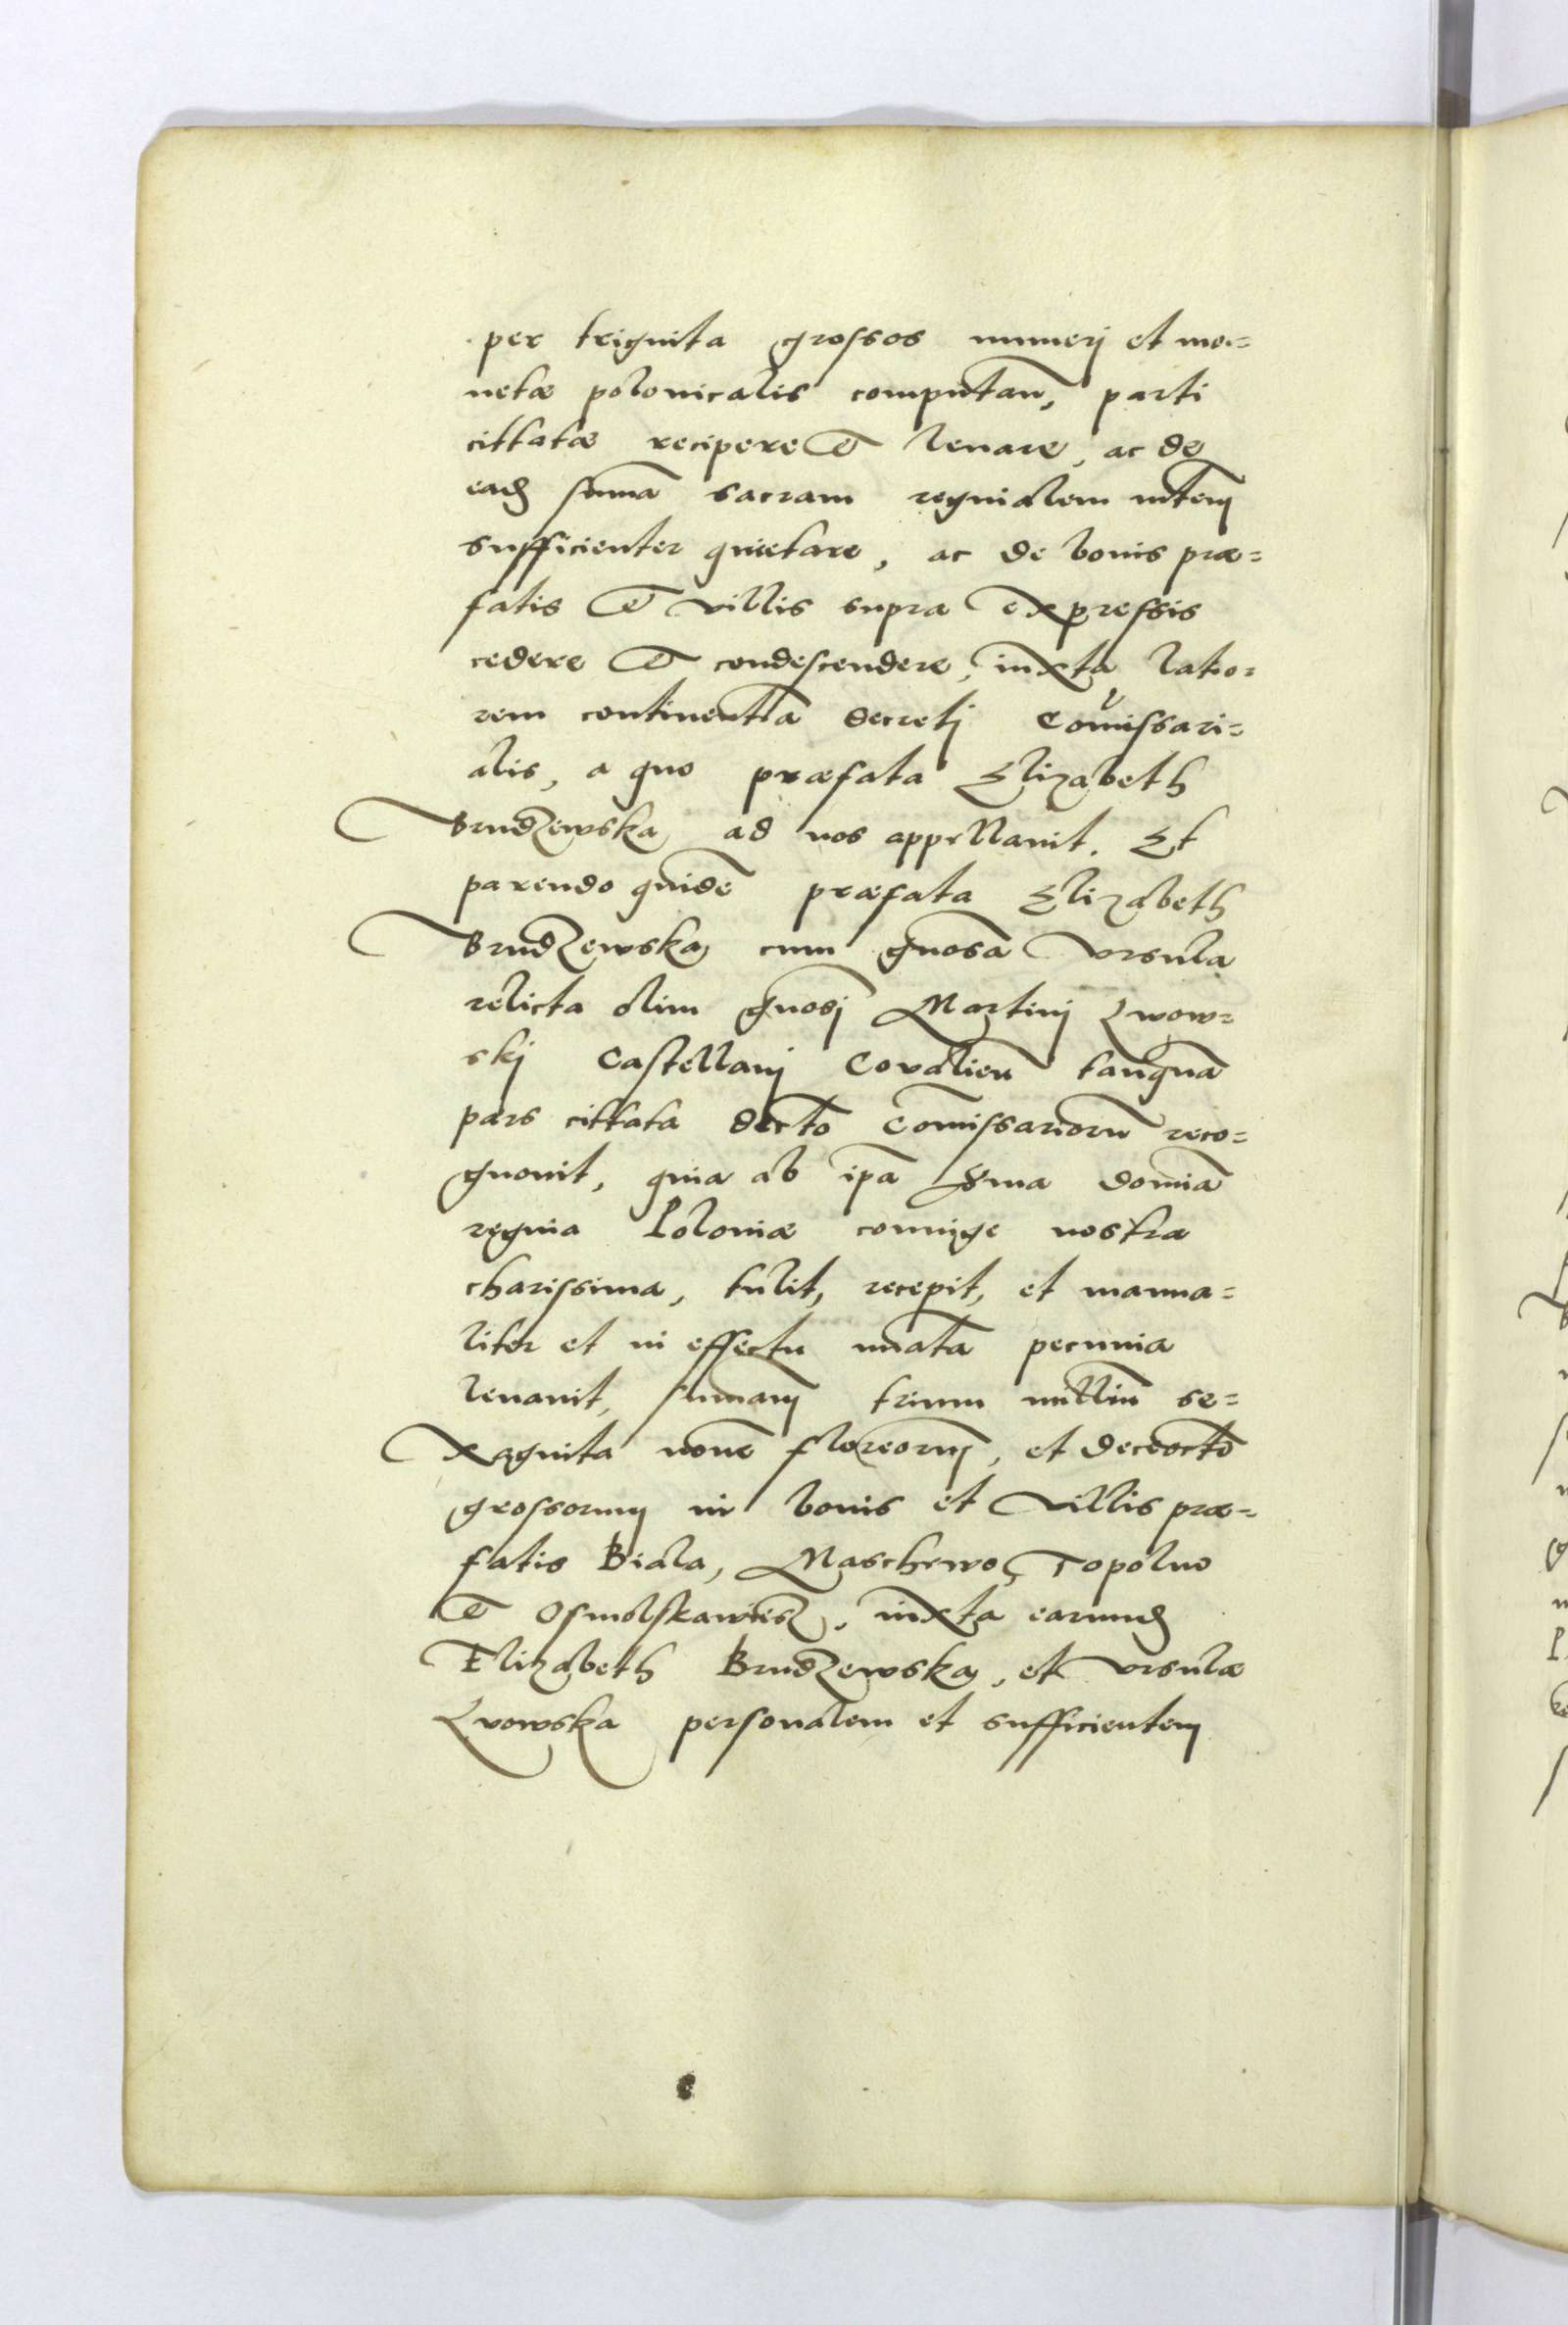 per triginta grossos numerj et mo=
netæ polonicalis computan̄, parti
cittatæ recipere et leuare, ac de
eadē sum̄a sacram reginalem mtem
sufficienter quietare, ac de bonis præ=
fatis et villis supra expressis
cedere et condescendere, iuxta latio=
rem continentiā decretj Com̄issari=
alis, a quo præfata Elizabeth
Brudzewska ad nos appellauit. Et
parendo quidē præfata Elizabeth
Brudzewska cum gn̄osa Vrsula
relicta olim gn̄osj Martinj Zwow=
skj Castellanj Covalien̄ tanquā
pars cittata decto Com̄issariorū reco=
gnouit, quia ab ip̄a sērma domina
regina Poloniæ coniuge nostra
charissima, tulit, recepit, et manua=
liter et in effectu nūata pecunia
leuauit, sum̄am trium milliū se=
xaginta noue floreorum, et deceocto
grossorum in bonis et villis præ=
fatis Biala, Maschewo, Topolno
et Osmolskawiesz, iuxta earumd
Elizabeth Brudzewska, et Vrsulæ
Zvowska personalem et sufficientem